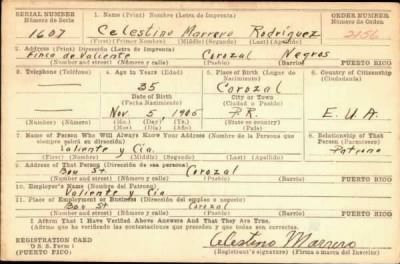 SERIAL NUMBER 1. Name (Print) Nombre (Letra de Imprenta) ORDER NUMBER
Número de Serie Número de Orden
1607 Celestino Marrero Rodriguez 2156
(First) (Primer) (Middle) (Segundo) (Last) (Apellido)
2. Address (Print) Dirección (Letra de Imprenta)
Finca de Valiente Corozal Negros
(Number and street) (Número y calle) (Pueblo) (Barrio) PUERTO RICO
3. Telephone (Teléfono) 4. Age in Years (Edad) 5. Place of Birth (Lugar de Nacimiento) 6. Country of Citizenship (Ciudadanía)
— 35 Corozal
Date of Birth City or Town
(Fecha Nacimiento) (Ciudad o Pueblo)
— Nov. 5 1905 P.R. E. U. A.
(Number) (Número) (Mo.) (Day) (Yr.) State or country
(Mes) (Día) (Año) (Estado o país)
7. Name of Person Who Will Always Know Your Address (Nombre de la Persona que siempre sabrá su dirección) 8. Relationship of That Person (Parentesco)
Valiente y Cía. Patrono
(First) (Primer) (Middle) (Segundo) (Last) (Apellido)
9. Address of That Person (Dirección de esa persona)
Bou St. Corozal
(Number and street) (Número y calle) (Pueblo) (Barrio) PUERTO RICO
10. Employer's Name (Nombre del Patrono)
Valiente y Cía
11. Place of Employment or Business (Dirección del empleo o negocio)
Bou St. Corozal
(Number and street) (Número y calle) (Pueblo) (Barrio) PUERTO RICO
I Affirm That I Have Verified Above Answers And That They Are True.
Afirmo que he verificado las contestaciones que preceden y que todas son correctas.
REGISTRATION CARD
D. S. S. Form 1
PUERTO RICO
Celestino Marrero
(Registrant's signature) (Firma o marca del Inscrito)